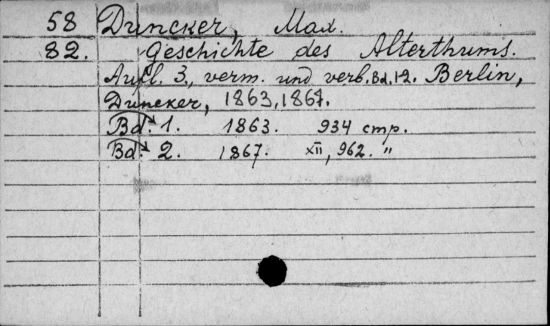 58 Duncker, Max.
82. Geschichte des Alterthums.
Aufl. 3., verm. und verb. Bd. 1-2. Berlin,
Duncker, 1863, 1867.
Bd. 1. 1863. 934 стр.
Bd. 2. 1867. XII, 962. "